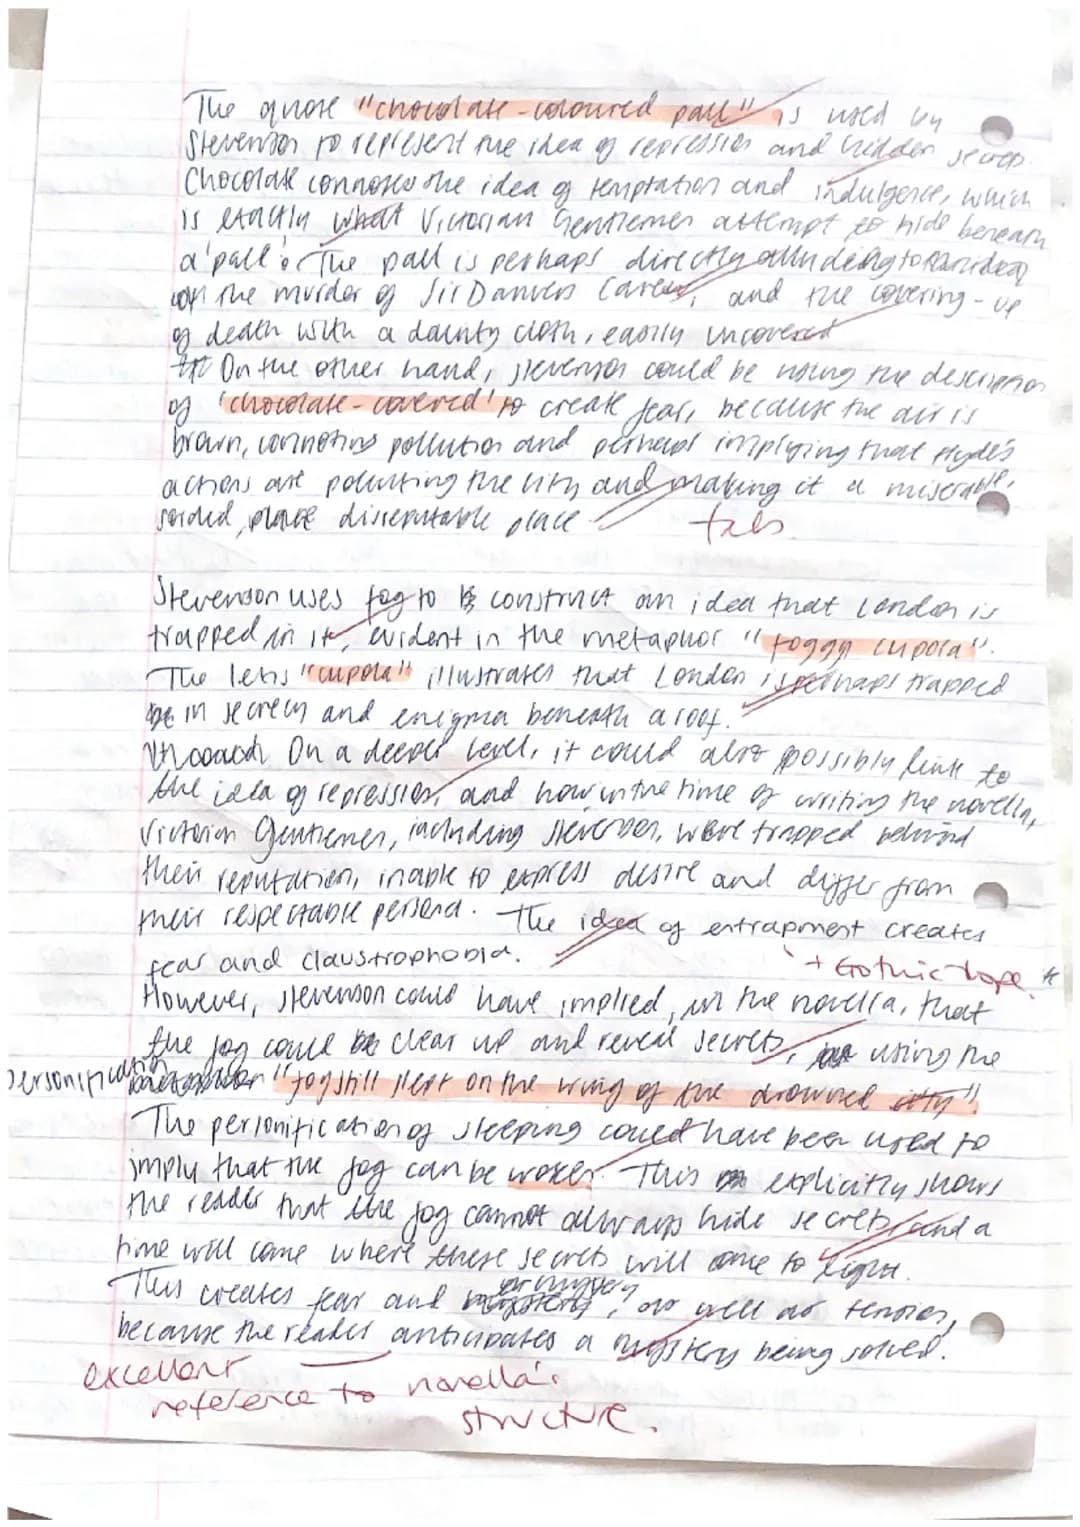 The quote "chocolate-coloured pall" is used by
Stevenson to represent the idea of repression and hidden secrets.
Chocolate connotes the idea of temptation and indulgence, which
is exactly what Victorian Gentlemen attempt to hide beneath
a 'pall'. The pall is perhaps directly alluding to
the murder of Sir Danvers Carew, and the covering-up
of death with a dainty cloth, easily uncovered
On the other hand, Stevenson could be using the description
of 'chocolate-covered' to create fear, because the air is
brown, connoting pollution and perhaps implying that Hyde's
actions are polluting the city and making it a miserable,
sordid, disreputable place.
Stevenson uses fog to construct an idea that London is
trapped in it, evident in the metaphor "foggy cupola".
The lexis "cupola" illustrates that London is perhaps trapped
in secrecy and enigma beneath a roof.
On a deeper level, it could also possibly link to
the idea of repression, and how in the time of writing the novella,
Victorian Gentlemen, including Stevenson, were trapped behind
their reputation, unable to express desire and differ from
their respectable persona. The idea of entrapment creates
fear and claustrophobia.
+ Gothic trope. *
However, Stevenson could have implied, in the novella, that
the fog could clear up and reveal secrets, using the
personification "fog still slept on the wing of the drowned city".
The personification of sleeping could have been used to
imply that the fog can be woken. This explicitly shows
the reader that the fog cannot always hide secrets, and a
time will come where these secrets will come to light.
This creates fear and mystery, as well as tension,
because the reader anticipates a mystery being solved.
excellent
reference to novella's
structure.